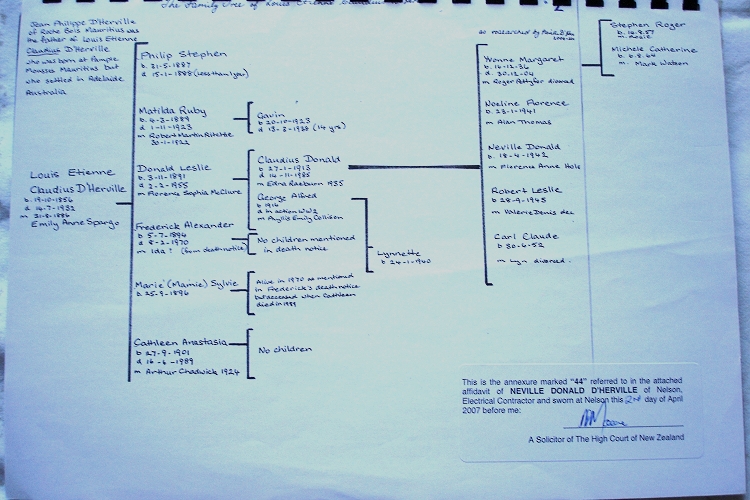 The Family Tree of Louis Etienne
Jean Philippe D'Herville
of Roche Bois Mauritius was
the father of Louis Etienne
Claudius D'Herville
who was born at Pample
Mousses Mauritius but
who settled in Adelaide
Australia
Louis Etienne
Claudius D'Herville
b. 19-10-1856
d 14-7-1932
m 31-8-1886
Emily Anne Spargo
Philip Stephen
b. 31-5-1887
d 15-1-1888 (less than 1 year)
Matilda Ruby
b 4-3-1889
d 1-11-1923
m Robert Martin
30-1-1922
Donald Leslie
b 3-11-1891
d 2-2-1955
m Florence Sophia McClure
Frederick Alexander
b 5-7-1894
d 8-2-1970
m Ida ? (from death notice)
Marie (Mamie) Sylvie
b 25-9-1896
Cathleen Anastasia
b 27-9-1901
d 16-4-1989
m Arthur Chadwick 1924
Gavin
b 20-10-1923
d 13-3-1938 (14 yrs)
Claudius Donald
b 27-1-1913
d 14-11-1985
m Edna Raeburn 1935
George Alfred
b 1916
d in action WW2
m Phyllis Emily Collison
No children mentioned
in death notice
Alive in 1970 as mentioned
in Frederick's death notice
but deceased when Cathleen
died in 1989
No children
Lynnette
b 24-1-1940
as researched by
Yvonne Margaret
b. 16-12-36
d. 30-12-04
m Roger Pettyfer divorced
Noeline Florence
b 23-1-1941
m Alan Thomas
Neville Donald
b 18-4-1942
m Florence Anne Hole
Robert Leslie
b 28-9-1945
m Valerie Denis dec
Carl Claude
b 30-6-52
m Lyn divorced.
Stephen Roger
b. 16.8.57
m. Rosie
Michele Catherine
b. 6.8.64
m. Mark Watson
This is the annexure marked "44" referred to in the attached
affidavit of NEVILLE DONALD D'HERVILLE of Nelson,
Electrical Contractor and sworn at Nelson this 2nd day of April
2007 before me:
A Solicitor of The High Court of New Zealand